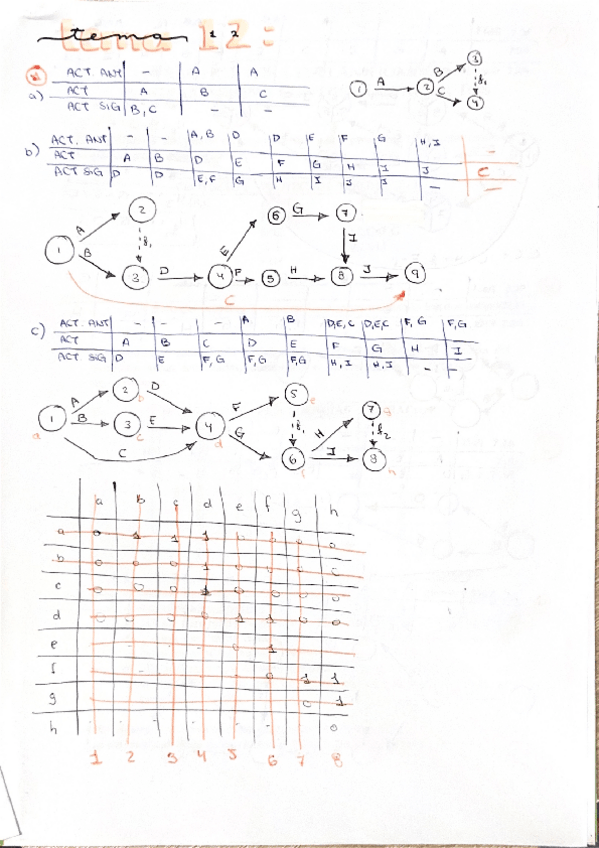 tema 12:
ACT. ANT - A A
a) ACT A B C
ACT SIG B, C - -
1 A 2 B 3 C 4 f₁
b) ACT. ANT - - A, B D D E F G H, I -
ACT A B D E F G H I J C
ACT SIG D D E, F G H I J J - -
1 A 2 B 3 f₁ D 4 E 6 G 7 I
F 5 H 8 J 9
C
c) ACT. ANT - - - A B D,E,C D,E,C F, G F, G
ACT A B C D E F G H I
ACT SIG D E F, G F, G F, G H, I H, I - -
1 A 2 D B 3 E C 4 F 5 f₁ G 6 H 7 f₂ I 8
a b c d e f g h
a b c d e f g h
a 0 1 1 1 0 0 0 0
b 0 0 0 1 0 0 0 0
c 0 0 0 1 0 0 0 0
d 0 0 0 0 1 1 0 0
e - - - - 0 1
f - - - - - 0 1 1
g 0 1
h - - - - 0
1 2 3 4 5 6 7 8